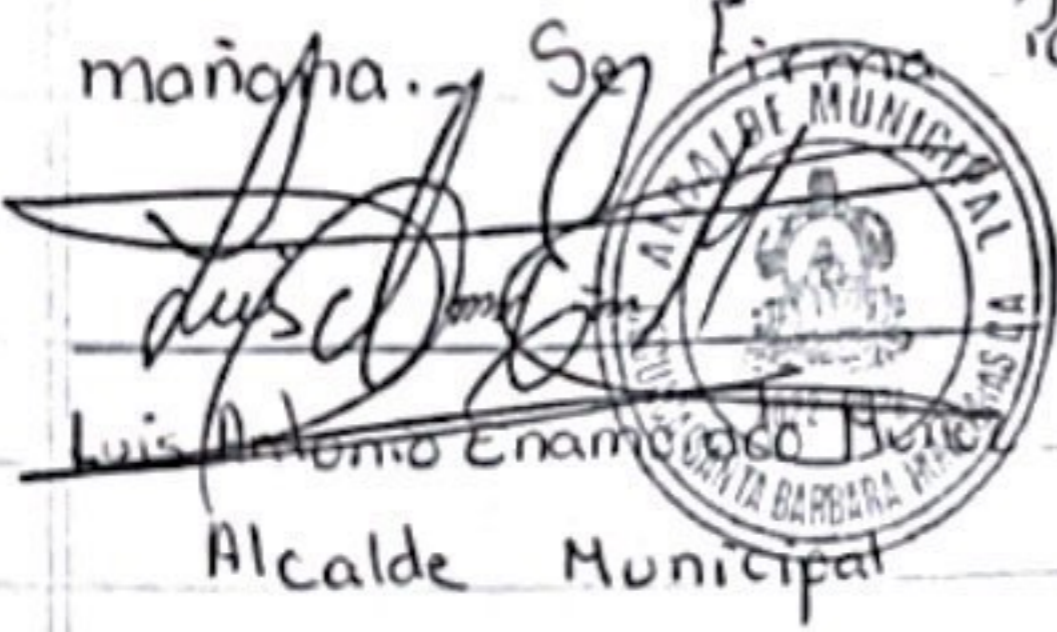 mañana. Se Firma
Luis Antonio Enamorado
Alcalde Municipal
ALCALDE MUNICIPAL
SANTA BARBARA